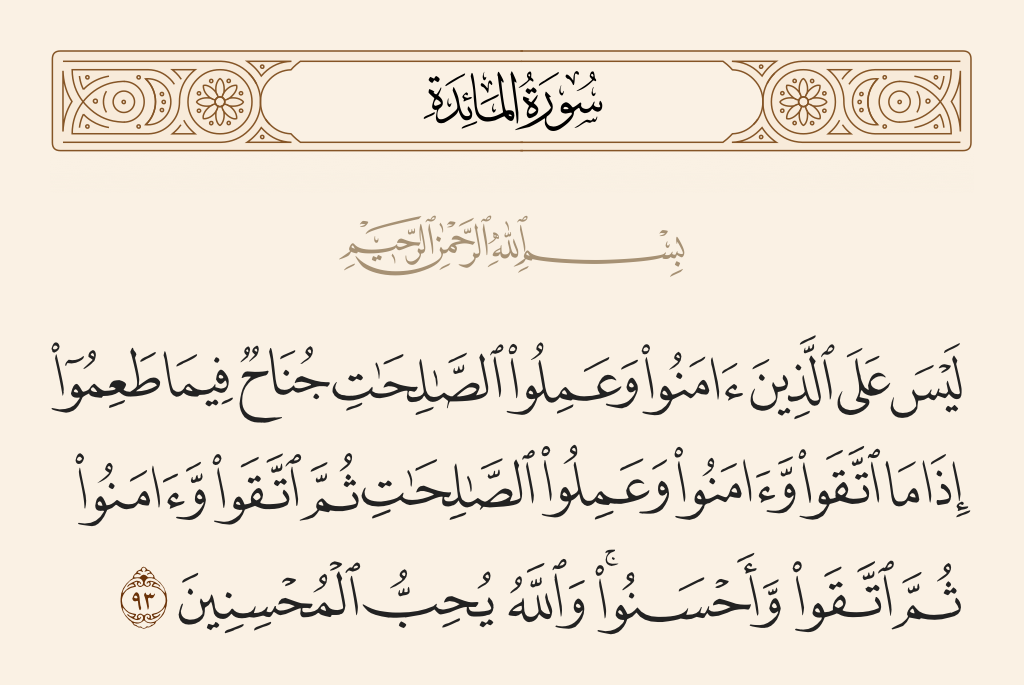 سُورَةُ المَائِدَةِ
بِسْمِ ٱللَّهِ ٱلرَّحْمَٰنِ ٱلرَّحِيمِ
لَيْسَ عَلَى ٱلَّذِينَ ءَامَنُوا۟ وَعَمِلُوا۟ ٱلصَّـٰلِحَـٰتِ جُنَاحٌ فِيمَا طَعِمُوٓا۟
إِذَا مَا ٱتَّقَوا۟ وَّءَامَنُوا۟ وَعَمِلُوا۟ ٱلصَّـٰلِحَـٰتِ ثُمَّ ٱتَّقَوا۟ وَّءَامَنُوا۟
ثُمَّ ٱتَّقَوا۟ وَّأَحْسَنُوا۟ ۚ وَٱللَّهُ يُحِبُّ ٱلْمُحْسِنِينَ ٩٣